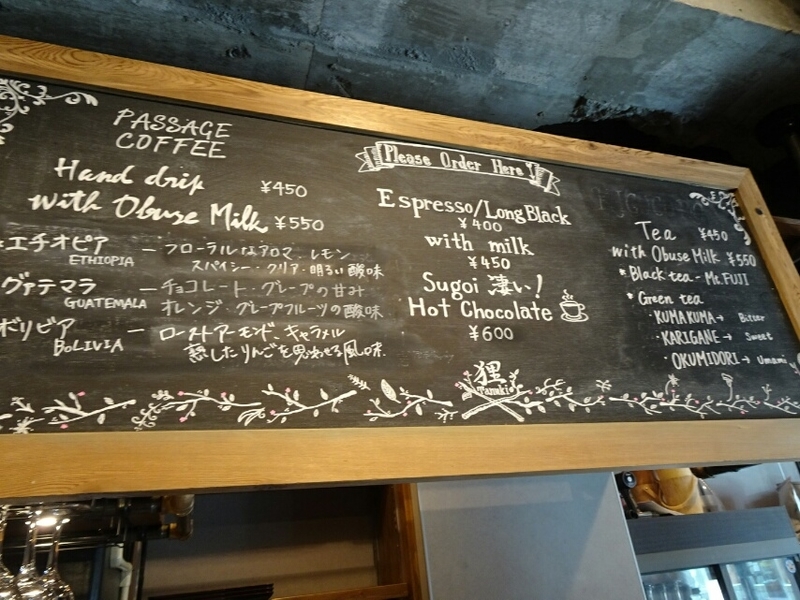 PASSAGE
COFFEE
Hand drip ¥450
with Obuse Milk ¥550
エチオピア — フローラルなアロマ、レモン
ETHIOPIA スパイシー・クリア・明るい酸味
グァテマラ — チョコレート・グレープの甘み
GUATEMALA オレンジ・グレープフルーツの酸味
ボリビア — ローストアーモンド、キャラメル
BOLIVIA 熟したりんごを思わせる風味
Please Order Here!
Espresso/Long Black
¥400
with milk
¥450
Sugoi 凄い!
Hot Chocolate
¥600
狸
Tanuki
Tea ¥450
with Obuse Milk ¥550
*Black tea - Mt.FUJI
*Green tea
・KUMAKUMA→ Bitter
・KARIGANE→ Sweet
・OKUMIDORI→ Umami